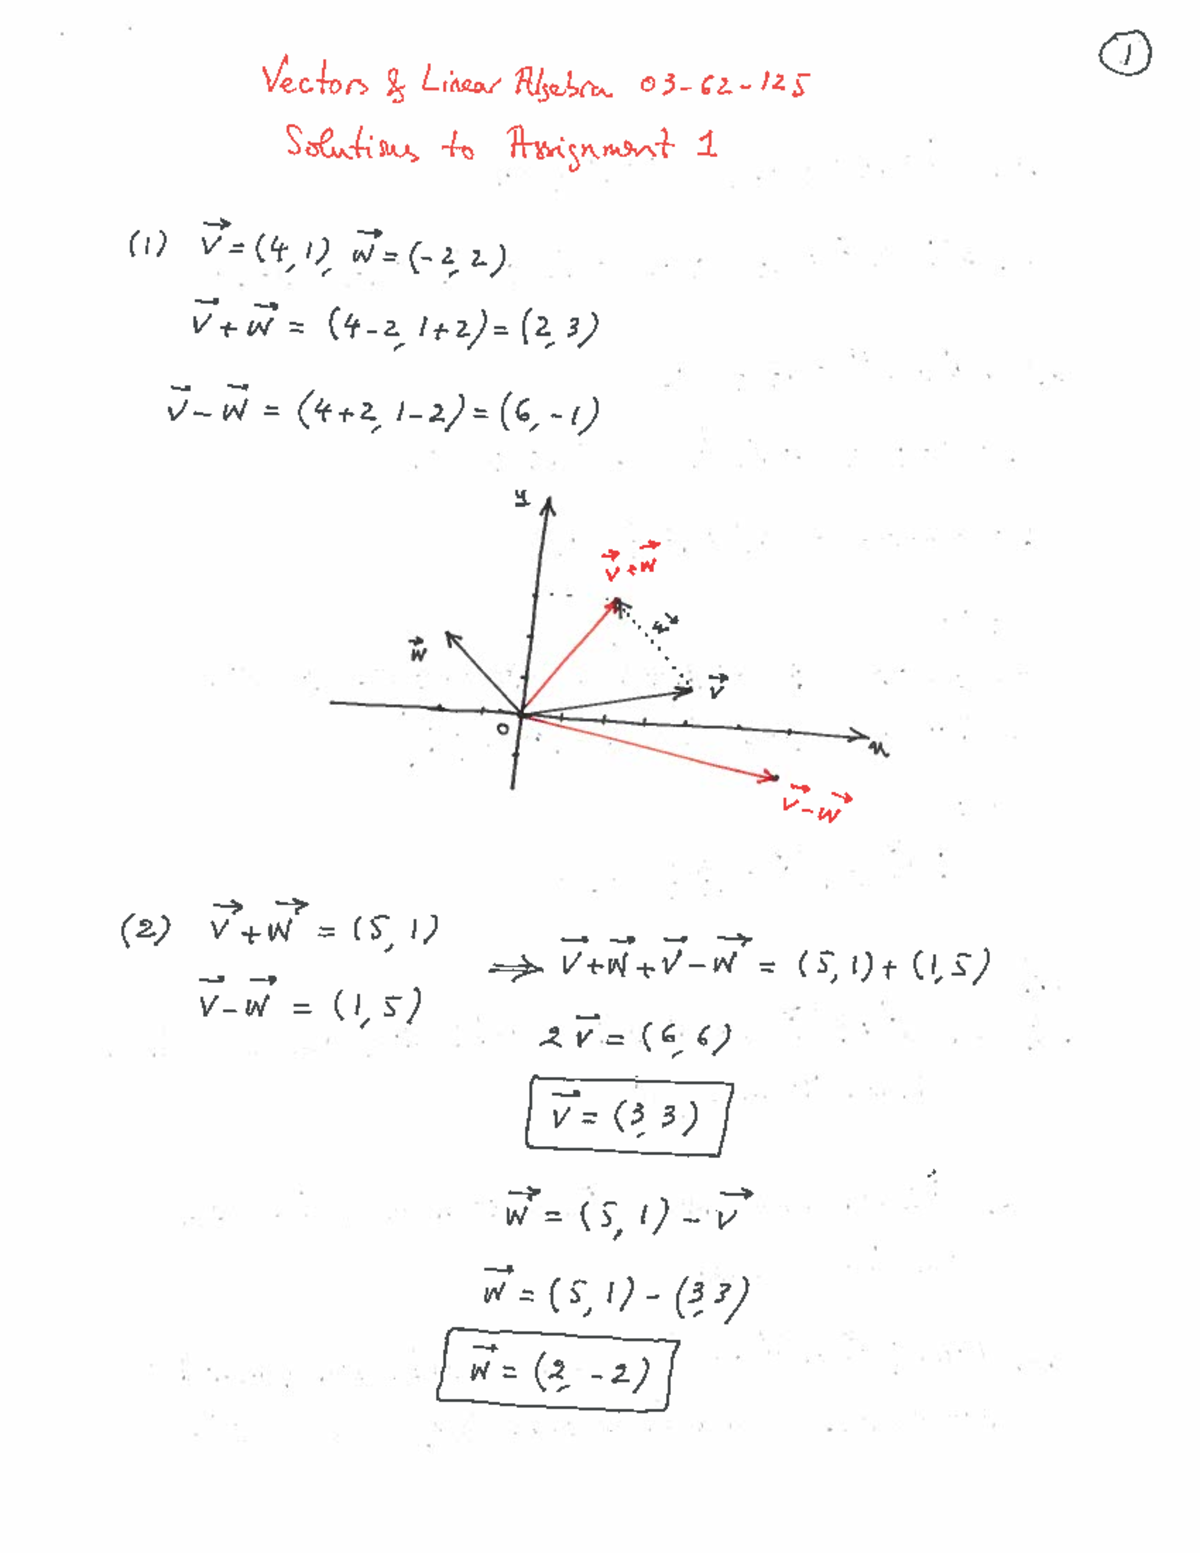 1
Vectors & Linear Algebra 03-62-125
Solutions to Assignment 1
(1) v⃗ = (4, 1), w⃗ = (-2, 2).
v⃗ + w⃗ = (4-2, 1+2) = (2, 3)
v⃗ - w⃗ = (4+2, 1-2) = (6, -1)
y
v⃗ + w⃗
w⃗
w⃗
v⃗
0
x
v⃗ - w⃗
(2) v⃗ + w⃗ = (5, 1)
v⃗ - w⃗ = (1, 5)
⇒ v⃗ + w⃗ + v⃗ - w⃗ = (5, 1) + (1, 5)
2 v⃗ = (6, 6)
v⃗ = (3, 3)
w⃗ = (5, 1) - v⃗
w⃗ = (5, 1) - (3, 3)
w⃗ = (2, -2)